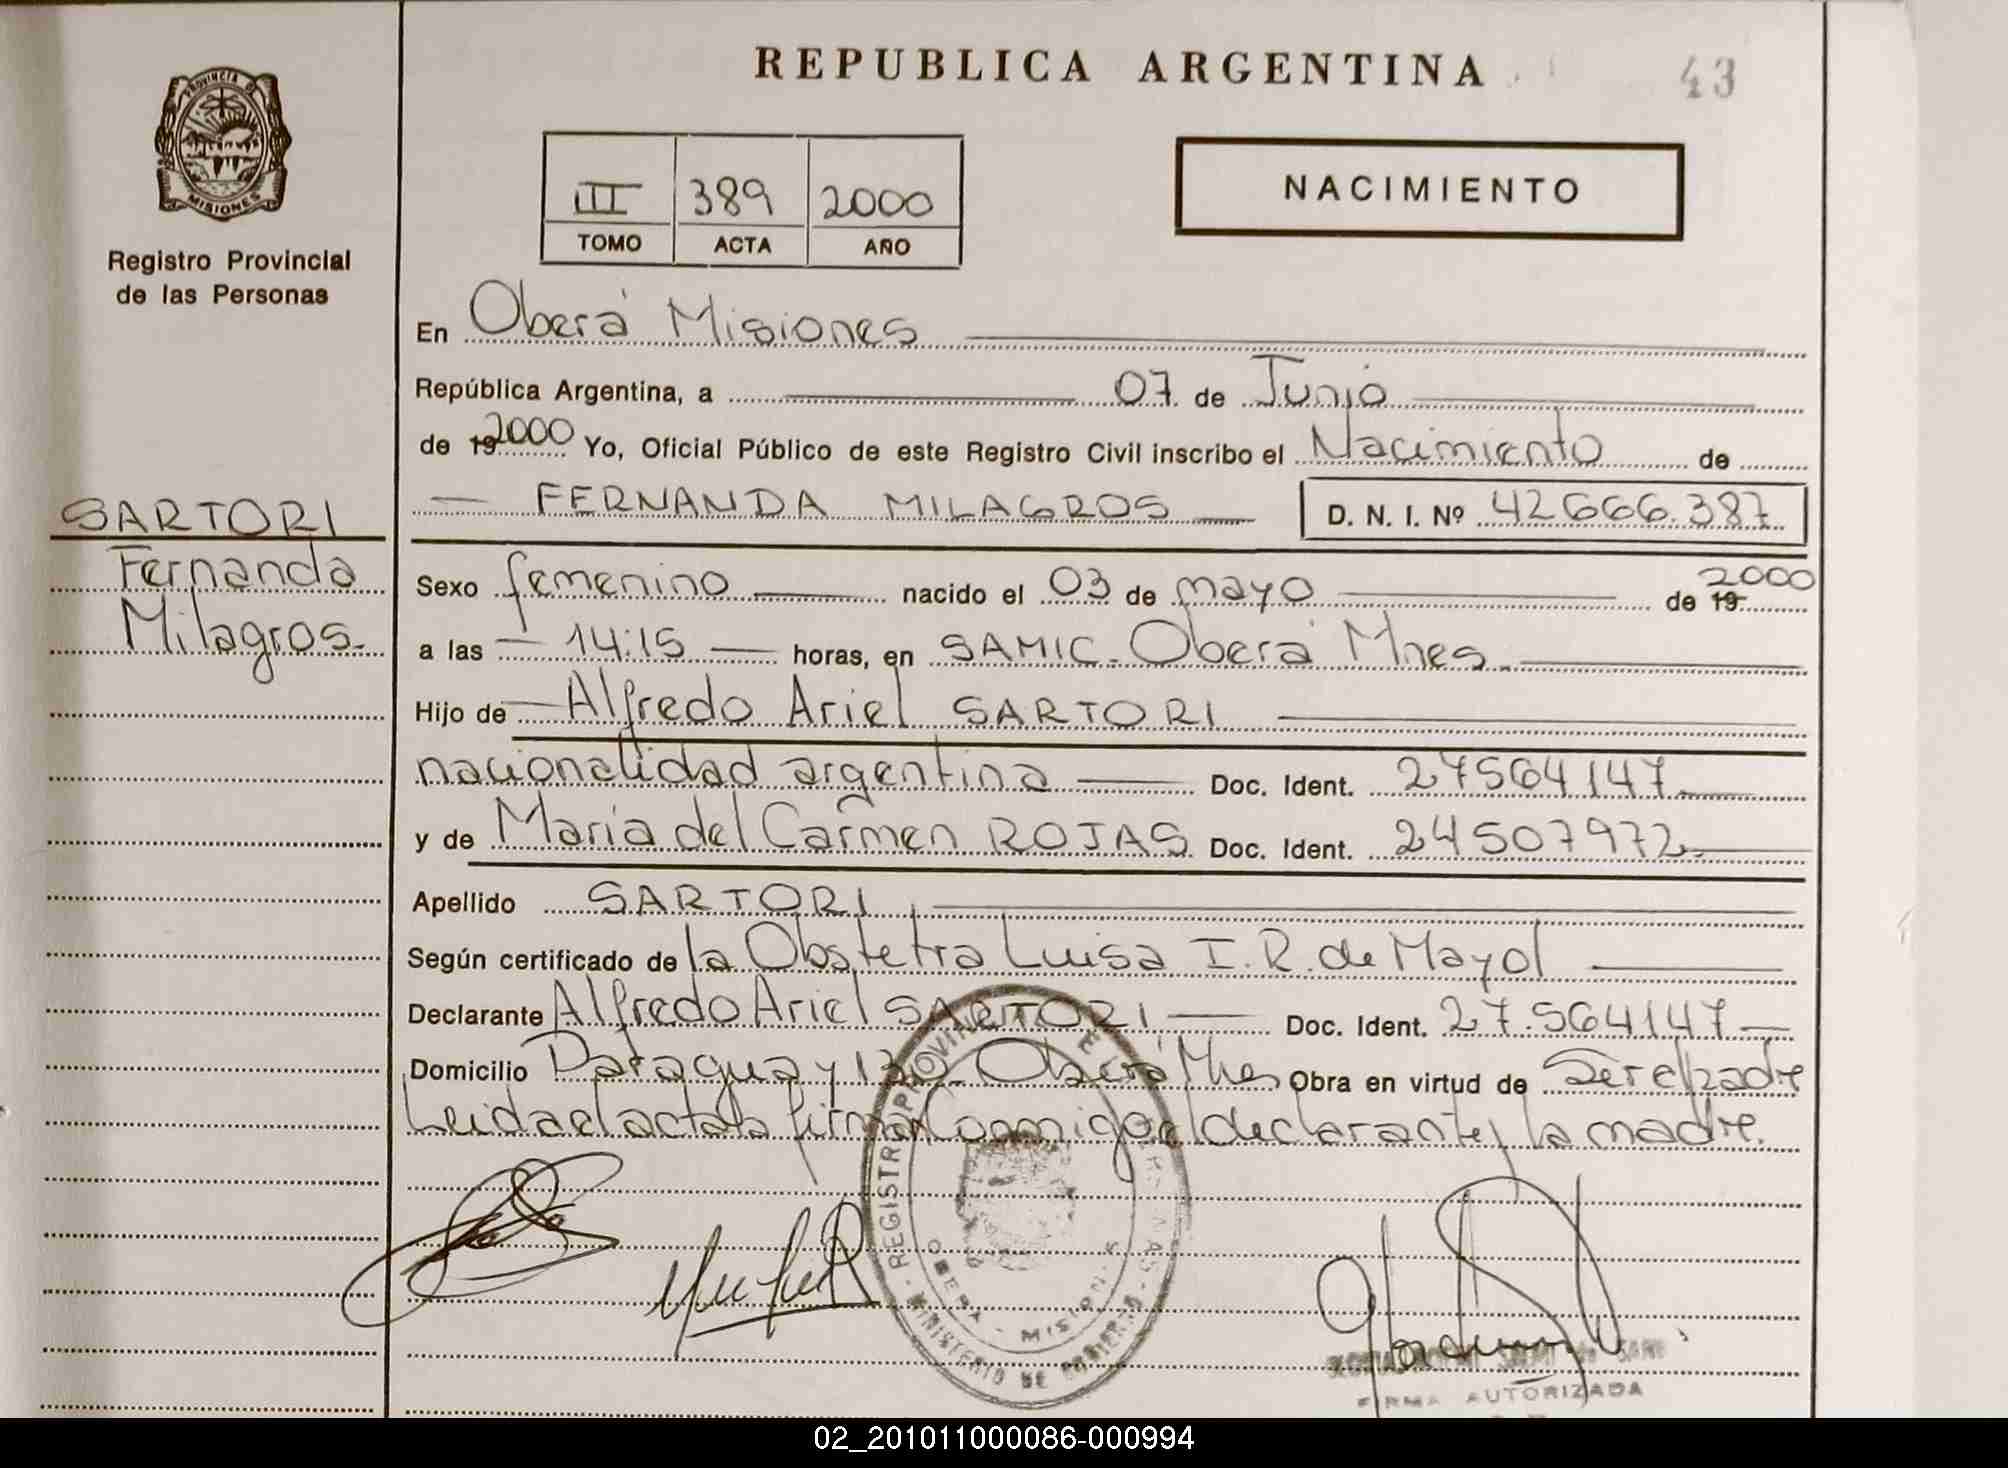 REPUBLICA ARGENTINA
43
PROVINCIA DE MISIONES
Registro Provincial
de las Personas
III 389 2000
TOMO ACTA AÑO
NACIMIENTO
En Oberá Misiones
República Argentina, a 07 de Junio
de 19 2000 Yo, Oficial Público de este Registro Civil inscribo el Nacimiento de
FERNANDA MILAGROS D. N. I. Nº 42666.387
SARTORI
Fernanda
Milagros
Sexo femenino nacido el 03 de mayo de 19 2000
a las 14:15 horas, en SAMIC. Oberá Mnes.
Hijo de Alfredo Ariel SARTORI
nacionalidad argentina Doc. Ident. 27564147
y de María del Carmen ROJAS Doc. Ident. 24507972
Apellido SARTORI
Según certificado de la Obstetra Luisa I. R. de Mayol
Declarante Alfredo Ariel SARTORI Doc. Ident. 27.564147
Domicilio Paraguay Oberá Mnes Obra en virtud de Ser el padre
Leida el acta la firman conmigo el declarante y la madre.
REGISTRO PROVINCIAL DE LAS PERSONAS
OBERA - MISIONES
MINISTERIO DE GOBIERNO
FIRMA AUTORIZADA
02_201011000086-000994